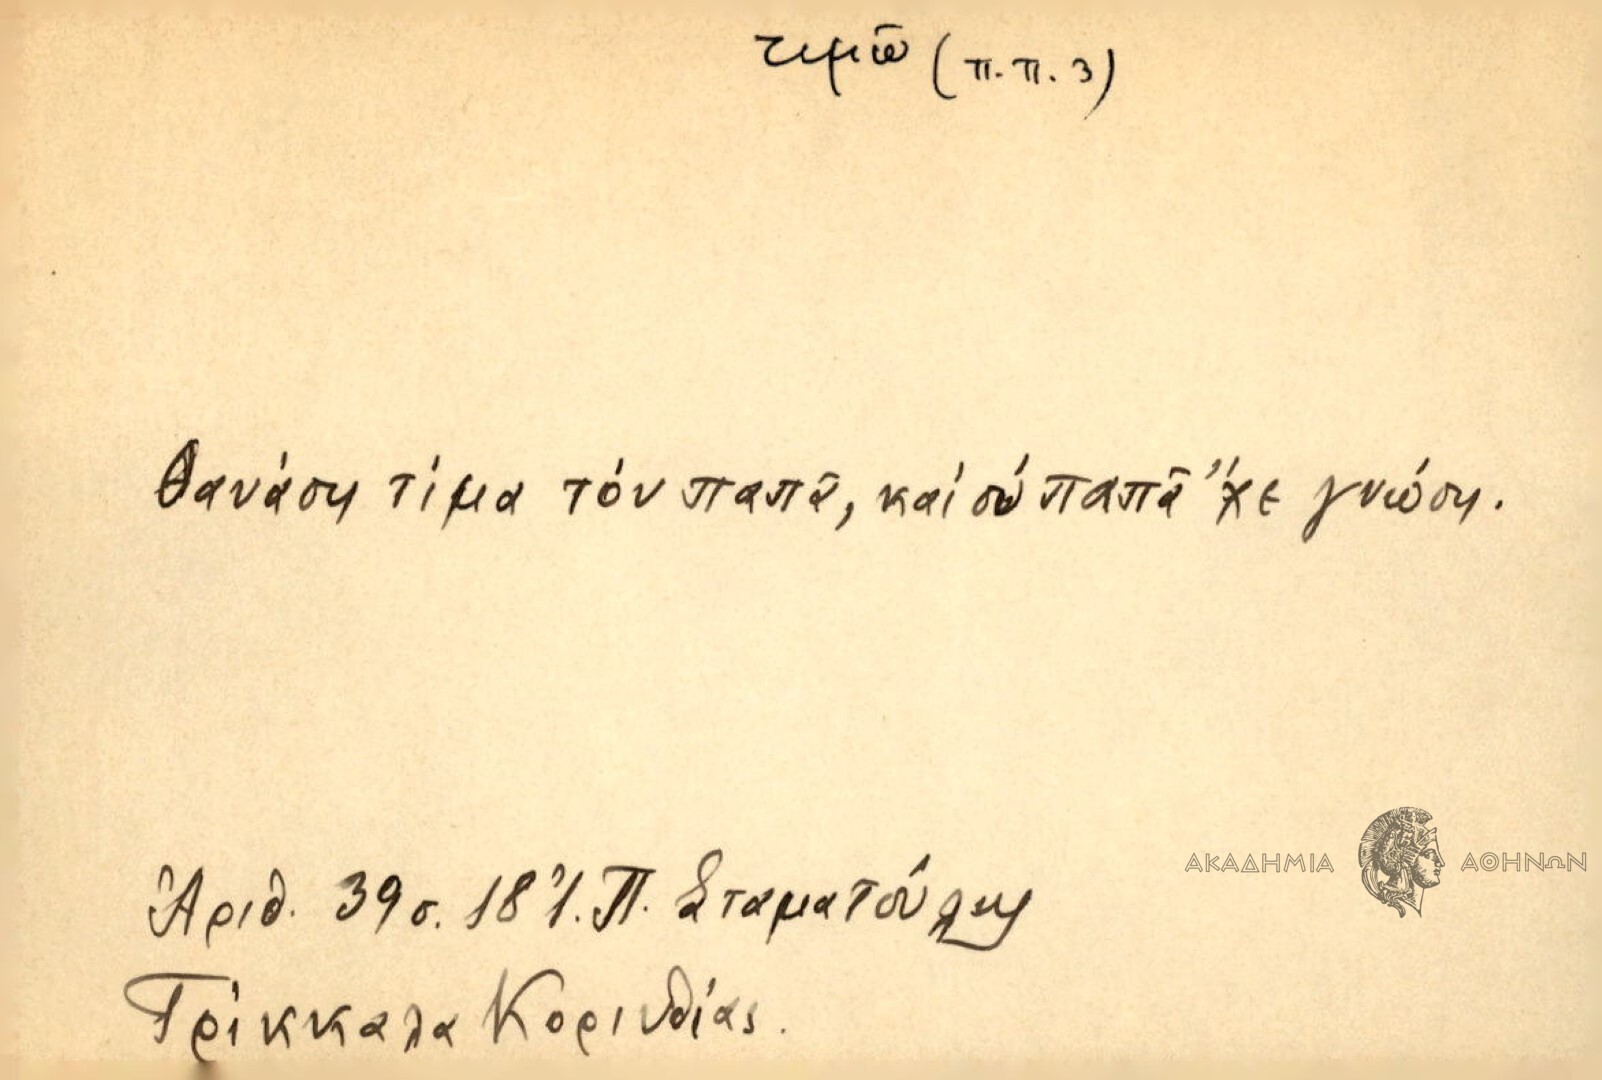 τιμῶ (π.π. 3)
Θανάση τίμα τόν παπᾶ, καί σύ παπᾶ 'χε γνώση.
Ἀριθ. 39 σ. 18 Ἰ. Π. Σταματούλη
Τρίκκαλα Κορινθίας.
ΑΚΑΔΗΜΙΑ ΑΘΗΝΩΝ